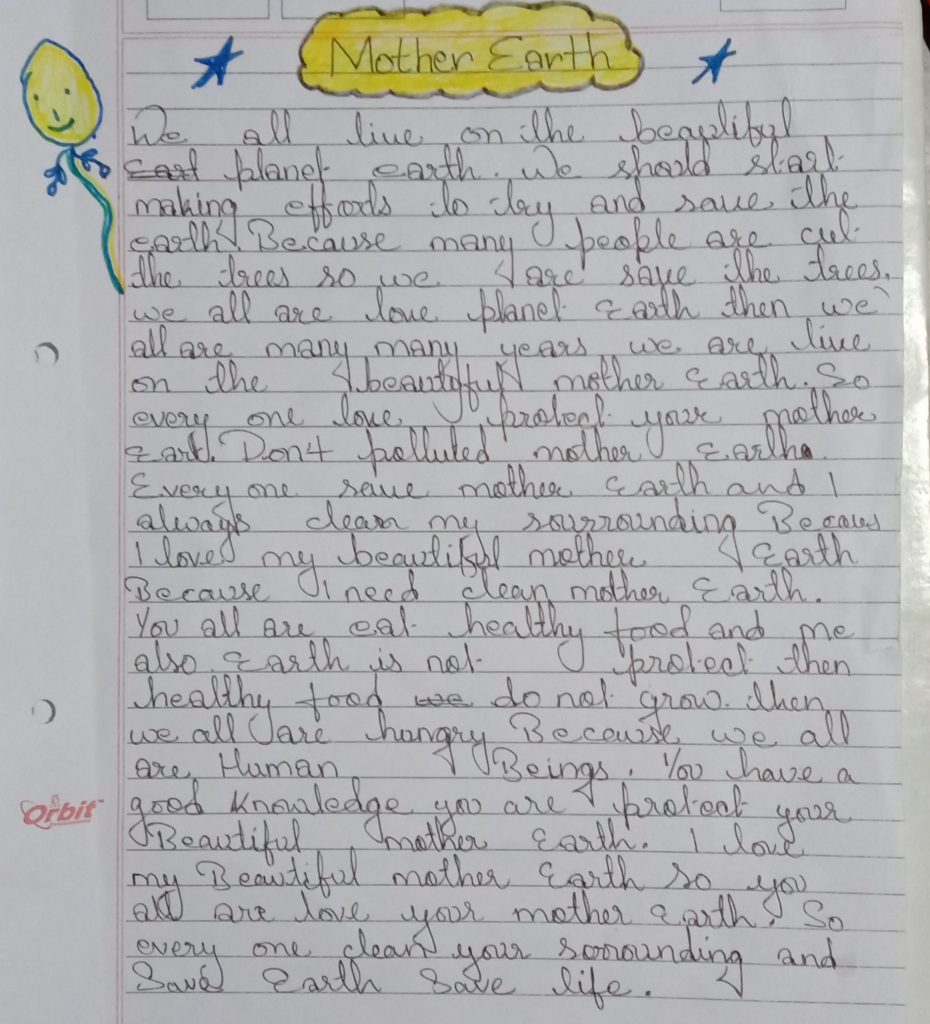 Mother Earth
We all live on the beautiful
planet earth. We should start
making efforts to try and save the
earth Because many people are cut
the trees so we are save the trees.
we all are love planet Earth then we
all are many many years we are live
on the beautyful mother Earth. So
every one love protect your mother
Eart. Don't polluted mother Earth.
Every one save mother Earth and I
always clean my sourrounding Becaus
I love my beautiful mother Earth
Because I need clean mother Earth.
You all are eat healthy food and me
also Earth is not protect then
healthy food we do not grow. then
we all are hungry Because we all
are Human Beings. You have a
good Knowledge you are protect your
Beautiful mother Earth. I love
my Beautiful mother Earth so you
all are love your mother Earth. So
every one clean your sorrounding and
Save Earth Save life.
Orbit